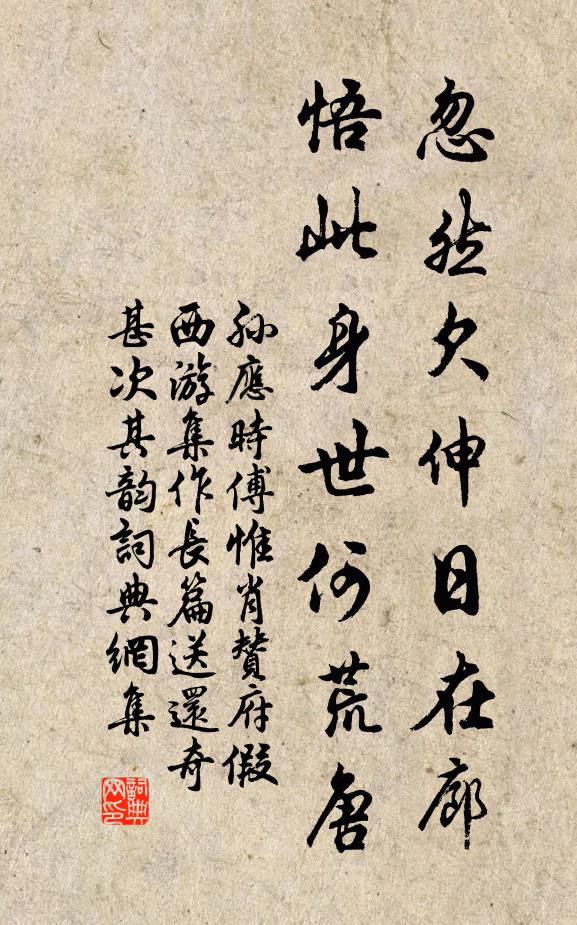 忽然欠伸日在廊
悟此身世何荒唐
孙應時傅惟肖贊府假
西游集作長篇送還奇
甚次其韵詞典網集
詞典网印